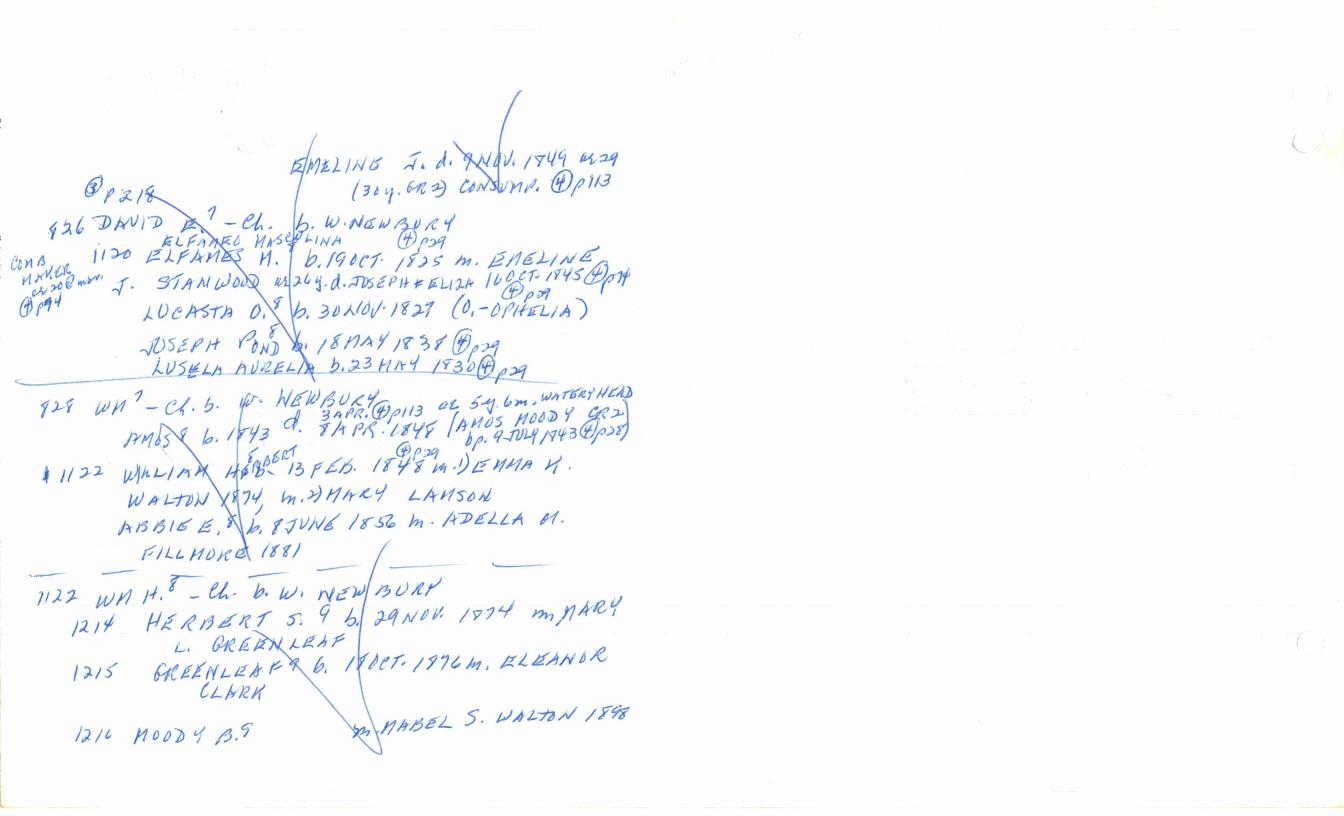 EMELING J. d. 9 NOV. 1849 ae 29
(30y. GR2) CONSUMP. ④ p113
③ p218
826 DAVID E.⁷ - Ch. b. W. NEWBURY
ELFAMEO MASCULINA ④ p29
1120 ELFAMES M. b. 19 OCT. 1825 m. EMELINE
COMB MAKER ae 20 @ marr. ④ p94
J. STANWOOD ae 26y. d. JOSEPH & ELIZA 16 OCT. 1845 ④ p94
④ p29
LUCASTA O.⁸ b. 30 NOV. 1827 (O.-OPHELIA)
JOSEPH POND⁸ b. 18 MAY 1838 ④ p29
LUSELA AURELIA b. 23 MAY 1830 ④ p29
828 WM⁷ - Ch. b. W. NEWBURY
3 APR. ④ p113 ae 5y. 6m. WATERY HEAD
AMOS⁸ b. 1843 d. 8 APR. 1848 (AMOS MOODY GR2)
bp. 9 JULY 1843 ④ p28)
HERBERT ④ p29
1122 WILLIAM H.⁸ b. 13 FEB. 1848 m. 1) EMMA K.
WALTON 1874, m. 2) MARY LAMSON
ABBIE E.⁸ b. 8 JUNE 1856 m. ADELLA M.
FILLMORE 1881
1122 WM H.⁸ - Ch. b. W. NEWBURY
1214 HERBERT S.⁹ b. 29 NOV. 1874 m. MARY
L. GREENLEAF
1215 GREENLEAF⁹ b. 18 OCT. 1876 m. ELEANOR
CLARK
1216 MOODY B.⁹ m. MABEL S. WALTON 1898